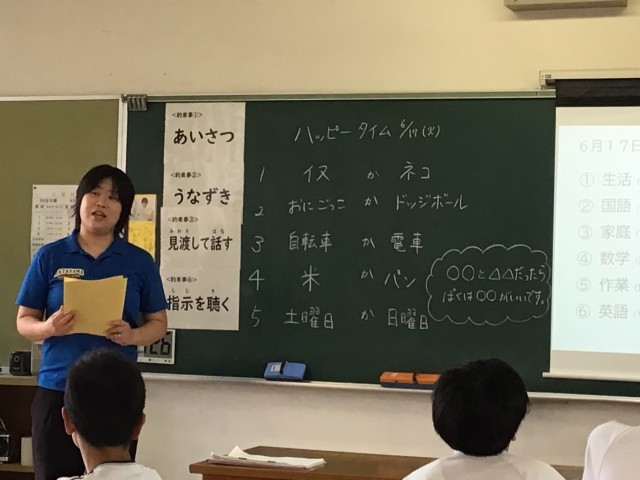 <約束事①>
あいさつ
<約束事②>
うなずき
<約束事③>
みわた はな
見渡して話す
<約束事④>
しじ き
指示を聴く
ハッピータイム 6/17(火)
1 イヌ か ネコ
2 おにごっこ か ドッジボール
3 自転車 か 電車
4 米 か パン
5 土曜日 か 日曜日
〇〇と△△だったら
ぼくは〇〇がいいです。
6月17日
① 生活
② 国語
③ 家庭
④ 数学
⑤ 作業
⑥ 英語